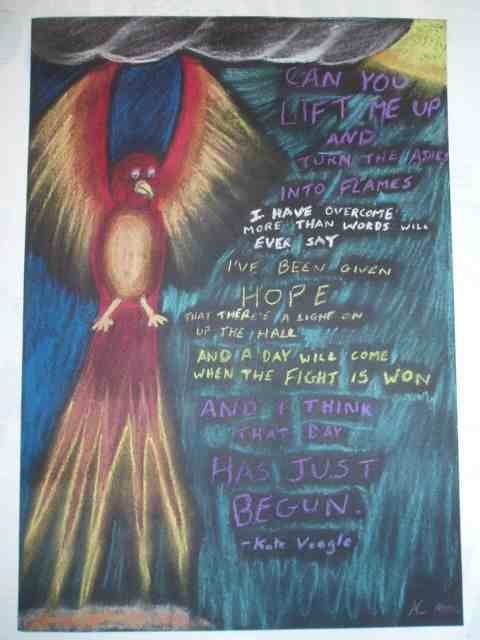 CAN YOU
LIFT ME UP
AND
TURN THE ASHES
INTO FLAMES
I HAVE OVERCOME
MORE THAN WORDS WILL
EVER SAY
I'VE BEEN GIVEN
HOPE
THAT THERE'S A LIGHT ON
UP THE HALL
AND A DAY WILL COME
WHEN THE FIGHT IS WON
AND I THINK
THAT DAY
HAS JUST
BEGUN.
-Kate Voegle